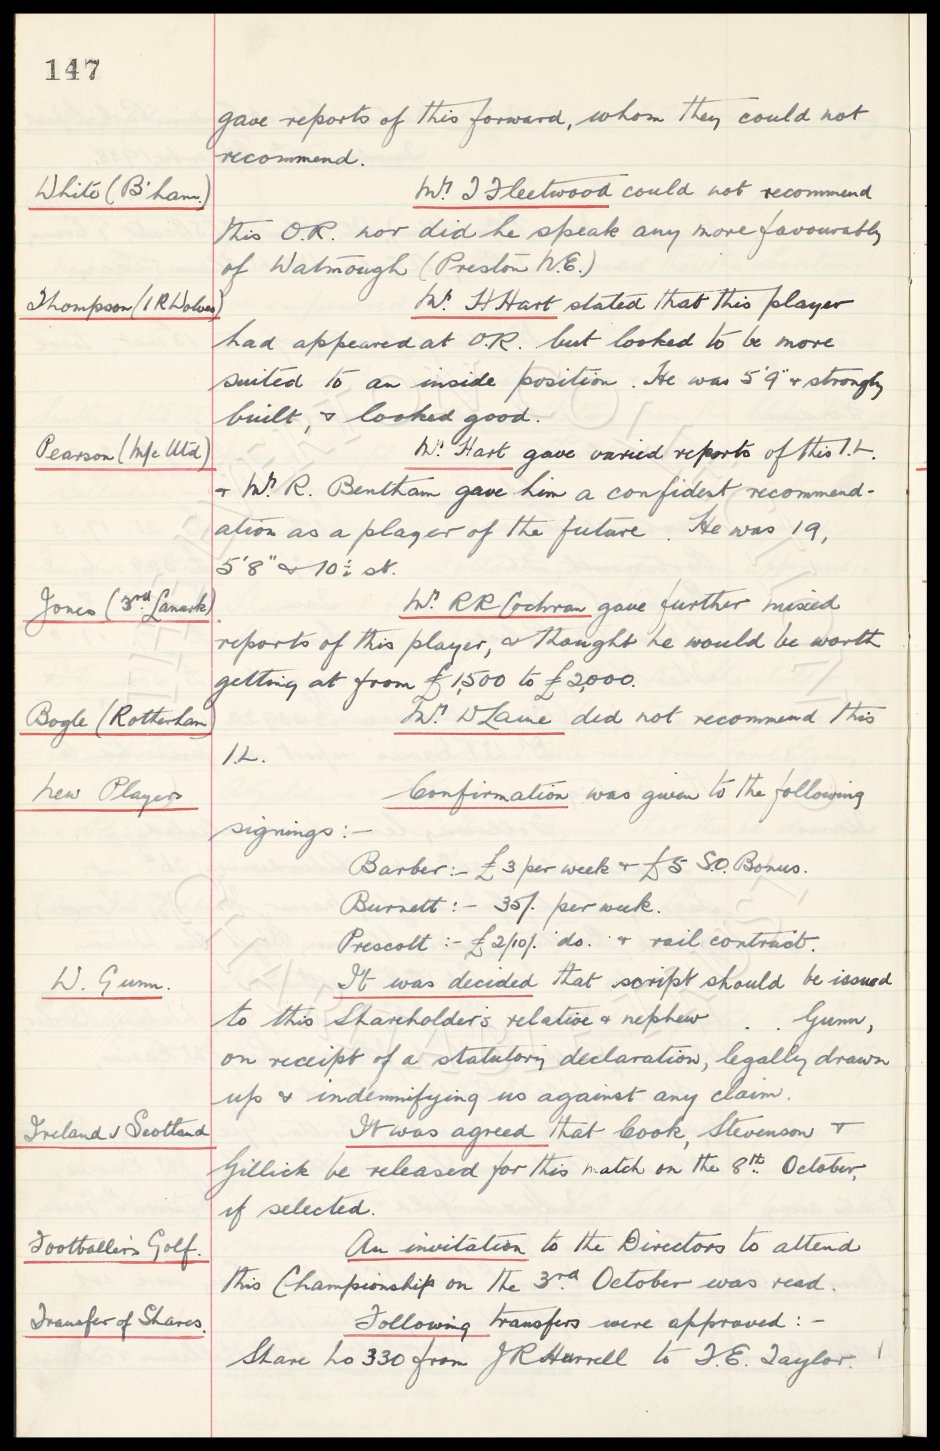 147
gave reports of this forward, whom they could not
recommend.
White (B'ham.) Mr. T Fleetwood could not recommend
this O.R. nor did he speak any more favourably
of Watmough (Preston N.E.)
Thompson (I R Wolves) Mr. H Hart stated that this player
had appeared at O.R. but looked to be more
suited to an inside position. He was 5'9" & strongly
built, & looked good.
Pearson (M/c Utd) Mr. Hart gave varied reports of this I.L.
& Mr. R. Bentham gave him a confident recommend-
ation as a player of the future. He was 19,
5'8" & 10½ st.
Jones (3rd. Lanark) Mr. R R Cochran gave further mixed
reports of this player, & thought he would be worth
getting at from £1,500 to £2,000.
Bogle (Rotherham) Mr. W Laine did not recommend this
I.L.
New Players Confirmation was given to the following
signings:-
Barber:- £3 per week & £5 S.O. Bonus.
Burnett:- 35/. per week.
Prescott:- £2/10/. do. & rail contract.
W. Gunn. It was decided that script should be issued
to this Shareholder's relative & nephew . . Gunn,
on receipt of a statutory declaration, legally drawn
up & indemnifying us against any claim.
Ireland v Scotland It was agreed that Cook, Stevenson &
Gillick be released for this match on the 8th. October,
if selected.
Footballer's Golf. An invitation to the Directors to attend
this Championship on the 3rd. October was read.
Transfer of Shares. Following transfers were approved:-
Share No 330 from J R Hurrell to T.E. Taylor. 1